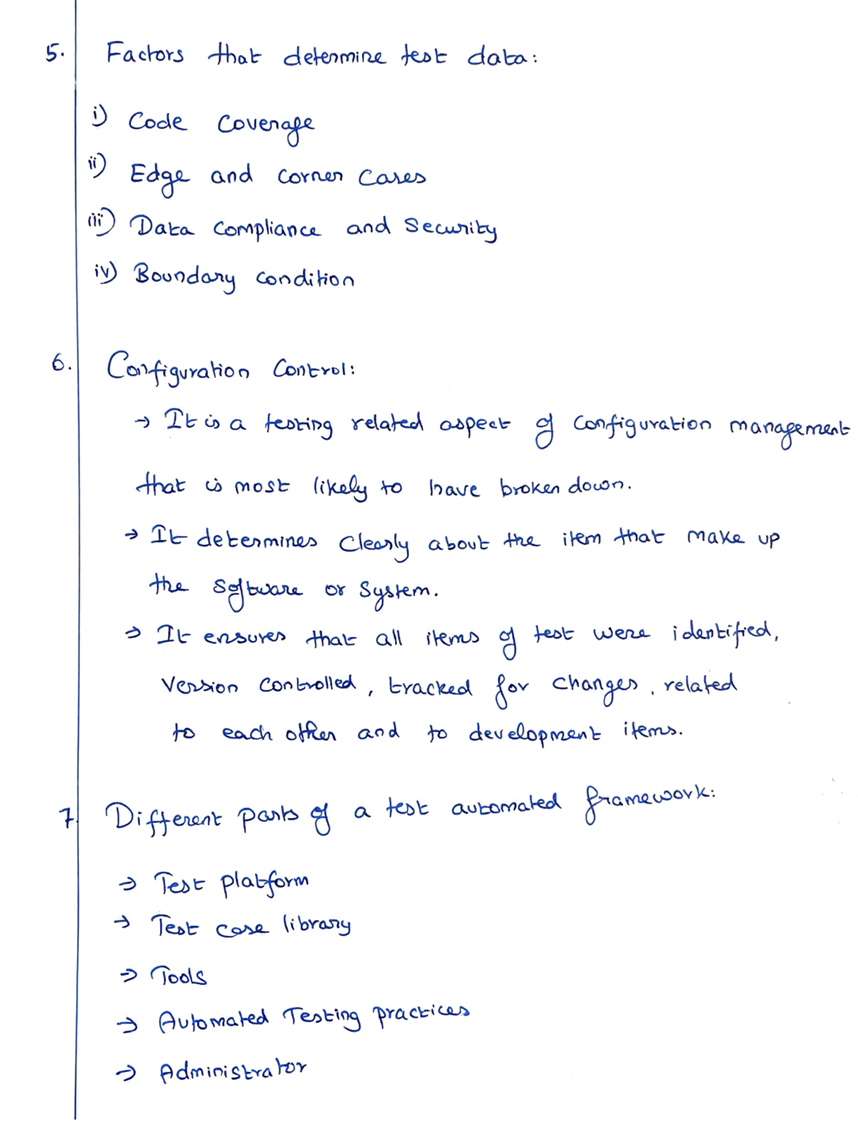 5. Factors that determine test data:
i) Code Coverage
ii) Edge and corner cases
iii) Data compliance and security
iv) Boundary condition
6. Configuration Control:
→ It is a testing related aspect of configuration management
that is most likely to have broken down.
→ It determines clearly about the item that make up
the software or system.
→ It ensures that all items of test were identified,
version controlled, tracked for changes, related
to each other and to development items.
7. Different parts of a test automated framework:
→ Test platform
→ Test case library
→ Tools
→ Automated Testing practices
→ Administrator